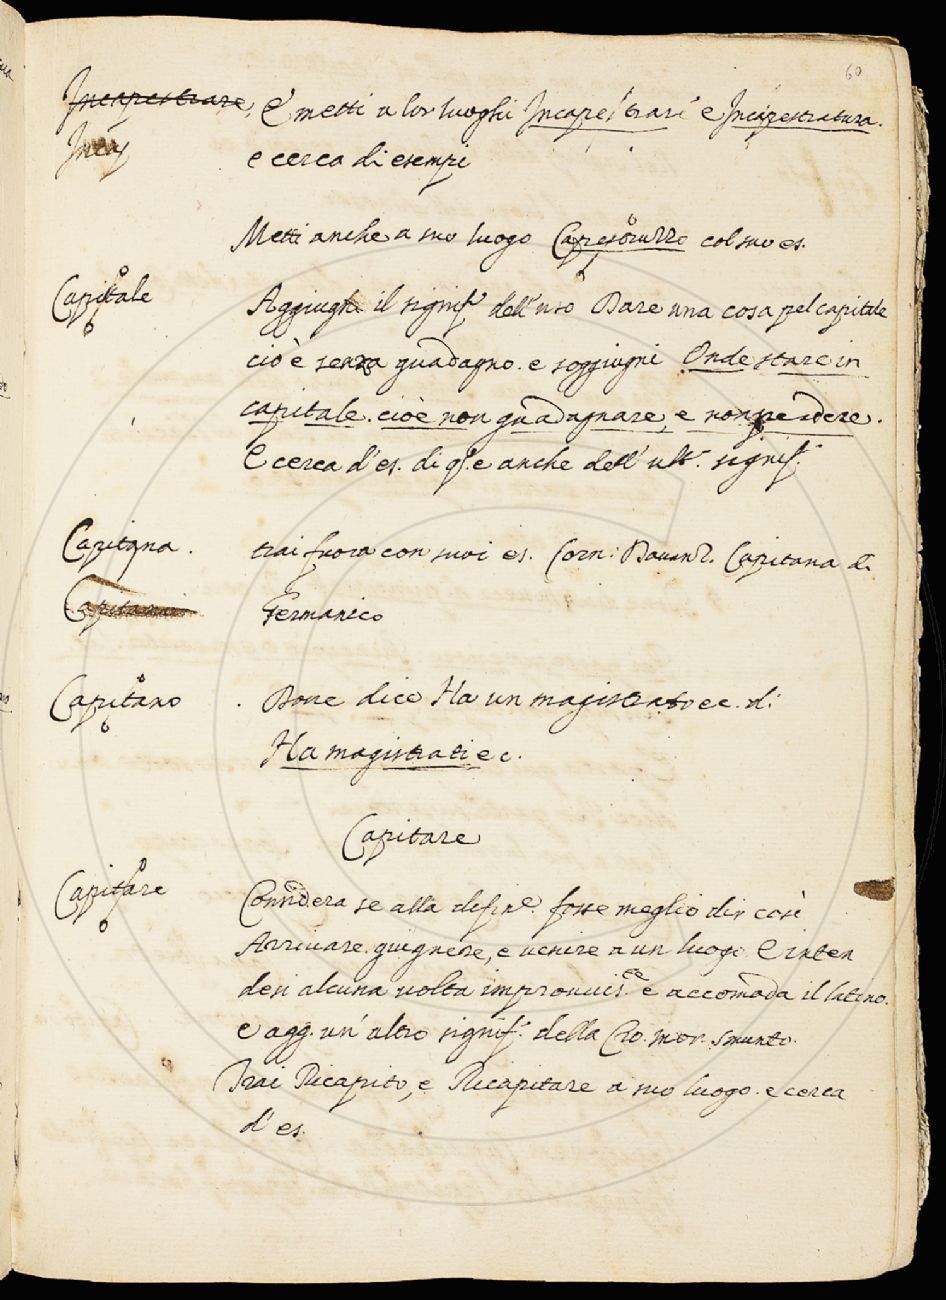 60
Incapestrare, E metti a lor luoghi Incapestrare e Incapestratura.
Incap
e cerca di esempi
Metti anche a suo luogo Capestruzzo col suo es.
Capitale Aggiugni il signif.º dell'uso Dare una cosa pel capitale
cio è senza guadagno. e soggiugni Onde stare in
capitale. cioè non guadagnare, e non perdere.
E cerca d'es. di q.e anche dell'ult.º signif.º
Capitana. trai fuora con suoi es. Corn. Davanz. Capitana di
Germanico
Capitano. Dove dice Ha un magistrato ec. di
Ha magistrati ec.
Capitare
Capitare Considera se alla defin.e fosse meglio dir così
Arrivare. giugnere, e venire a un luogo E inten
desi alcuna volta improvvis.te e accomoda il latino.
e agg. un'altro signif.º della Cro. mor. smunto.
Trai Ricapito, e Ricapitare a suo luogo. e cerca
d'es.